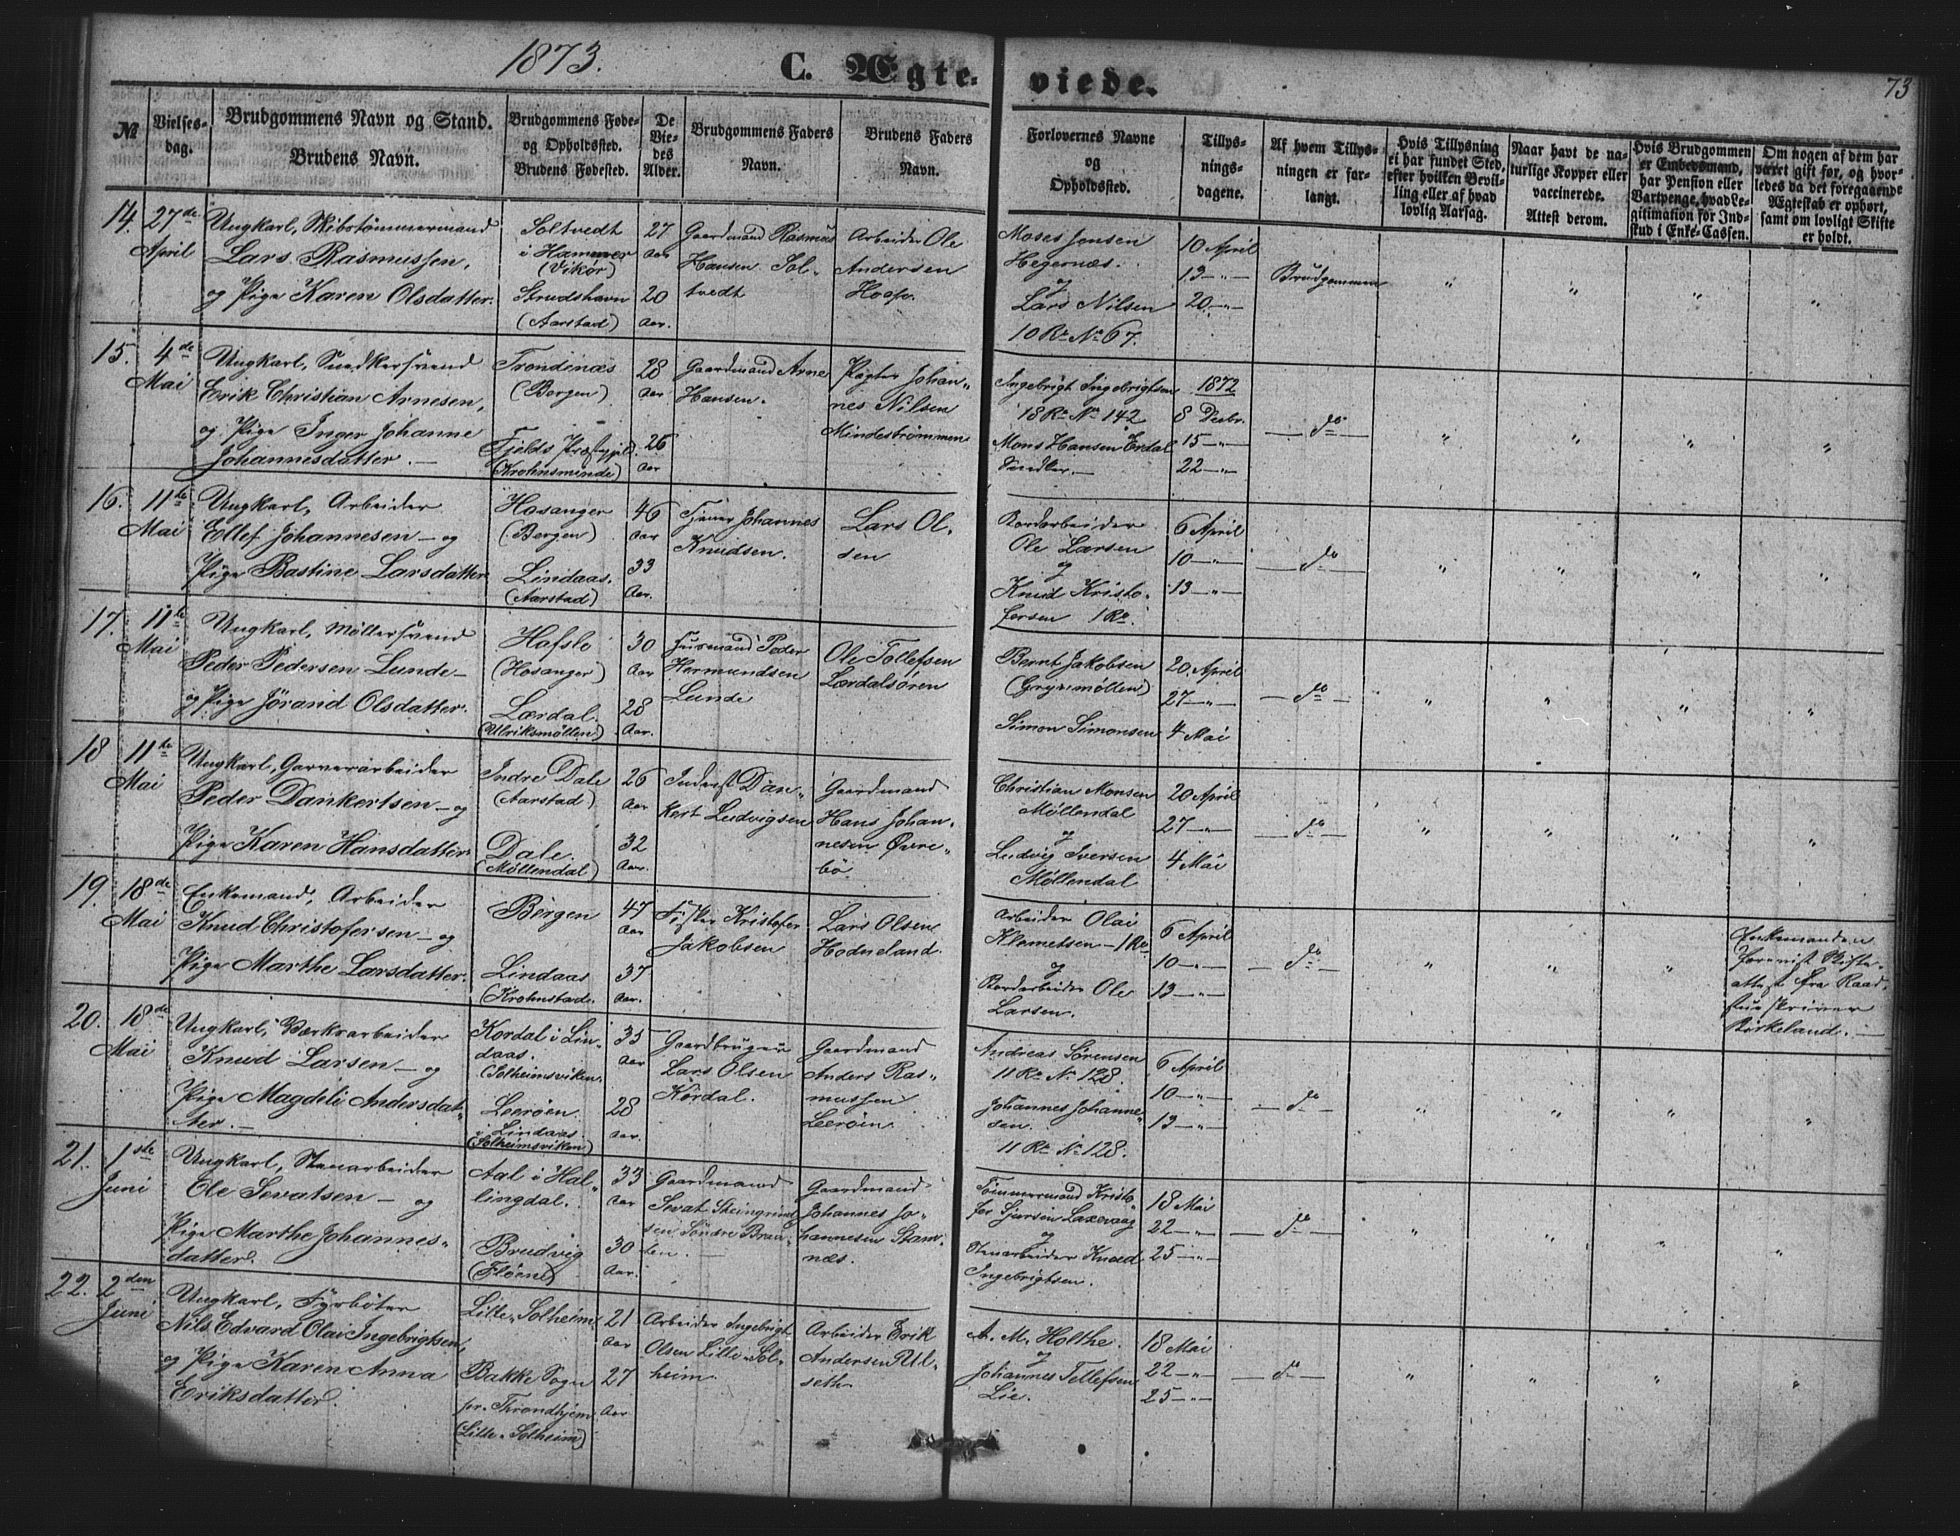 1873.
C. Ægte-
viede.
73
№
Vielses-
dag.
Brudgommens Navn og Stand.
Brudens Navn.
Brudgommens Føde-
og Opholdssted.
Brudens Fødested.
De
Vie-
des
Alder.
Brudgommens Faders
Navn.
Brudens Faders
Navn.
Forlovernes Navne
og
Opholdssted.
Tillys-
nings-
dagene.
Af hvem Tillys-
ningen er for-
langt.
Hvis Tillysning
ei har fundet Sted,
efter hvilken Bevil-
ling eller af hvad
lovlig Aarsag.
Naar havt de na-
turlige Kopper eller
vaccinerede.
Attest derom.
Hvis Brudgommen
er Embedsmand,
har Pension eller
Vartpenge, hvad Le-
gitimation for Ind-
skud i Enke-Cassen.
Om nogen af dem har
været gift før, og hvor-
ledes da det foregaaende
Ægteskab er ophørt,
samt om lovligt Skifte
er holdt.
14.
27de
April
Ungkarl, Skibstømmermand
Lars Rasmussen,
og Pige Karen Olsdatter.
Soltvedt
i Hammer
(Vikør)
Strudshavn
(Aarstad)
27
Aar
20
Aar.
Gaardmand Rasmus
Hansen Sol-
tvedt
Arbeider Ole
Andersen
Hoop.
Moses Jensen
Hegernæs.
og
Lars Nilsen
10 Re No 67.
10 April
13 — " —
20 — " —
Brudgommen
" " " "
15.
4de
Mai
Ungkarl, Snedkersvend
Erik Christian Arnesen,
og Pige Inger Johanne
Johannesdatter. —
Trondenæs
(Bergen)
Fjelds Præstgjeld.
(Krohnsminde)
28
Aar
26
Aar
Gaardmand Arne
Hansen.
Pagter Johan-
nes Nilsen
Mindestrømmen
Ingebrigt Ingebrigtsen
18 Re No 142
Mons Hansen Erdal
Snedker. —
1872
8 Decbr.
15 — " —
22 — " —
— do —
" " " "
16.
11te
Mai
Ungkarl, Arbeider
Ellef Johannesen — og
Pige Bastine Larsdatter
Hosanger
(Bergen)
Lindaas.
(Aarstad)
46
Aar
33
Aar.
Tjener Johannes
Knudsen.
Lars Ol-
sen
Bordarbeider
Ole Larsen
og
Knud Kristo-
fersen 1 Re.
6 April
10 — " —
13 — " —
— do —
" " " "
17.
11te
Mai
Ungkarl, Møllersvend
Peder Pedersen Lunde —
og Pige Jørand Olsdatter.
Hafslo
(Hosanger)
Lærdal.
(Ulriksmøllen)
30
Aar
28
Aar.
Husmand Peder
Hermundsen
Lunde
Ole Tollefsen
Lærdalsören
Bernt Jakobsen
Simon Simonsen
20 April
27 — " —
4 Mai
— do —
" " " "
18
11te
Mai
Ungkarl, Garverarbeider
Peder Dankertsen — og
Pige Karen Hansdatter.
Indre Dale
(Aarstad)
Dale.
(Møllendal)
26
Aar
32
Aar.
Inderst Dan-
kert Ludvigsen
Gaardmand
Hans Johan-
nesen Øvre-
bø.
Christian Monsen
Møllendal
og
Ludvig Iversen
Møllendal
20 April
27 — " —
4 Mai
— do —
" " " "
19.
18de
Mai
Enkemand, Arbeider
Knud Christofersen — og
Pige Marthe Larsdatter.
Bergen
Lindaas
(Krohnstad.
47
Aar
37
Aar.
Fisker Kristofer
Jakobsen
Lars Olsen
Hodneland.
Arbeider Olai
Klemetsen — 1 Re
og
Bordarbeider Ole
Larsen.
6 April
10 — " —
13 — " —
— do —
" " "
Enkemanden
forevist Skifte-
attest fra Raad-
stueskriver
Birkeland. —
20.
18de
Mai
Ungkarl, Værksarbeider
Knud Larsen — og
Pige Magdeli Andersdat-
ter. —
Kordal i Lin-
daas.
(Solheimsviken.
Leerøen
i Lindaas
(Solheimsviken)
35
Aar
28
Aar.
Gaardbruger
Lars Olsen
Kordal.
Gaardmand
Anders Ras-
mussen
Leerøen.
Andreas Sørensen
11 Re No 128.
Johannes Johanne-
sen.
11 Re No 128.
6 April
10 — " —
13 — " —
— do —
" " " "
21.
1ste
Juni
Ungkarl, Stenarbeider
Ole Sevatsen — og
Pige Marthe Johannes-
datter.
Aal i Hal-
lingdal.
Brudvig
(Fløene)
33
Aar
30
Aar.
Gaardmand
Sevat Steingrimd
sen Søndre Brau-
ten. —
Gaardmand
Johannes Jo-
hannesen Stam-
næs.
Tømmermand Kristo-
fer Sjursen Laxevaag
og
Stenarbeider Knud
Ingebrigtsen.
18 Mai
22 — " —
25 — " —
— do —
" " " "
22.
2den
Juni
Ungkarl, Fyrbøter
Nils Edvard Olai Ingebrigtsen,
og Pige Karen Anna
Eriksdatter.
Lille Solheim.
Bakke Sogn
pr. Throndhjem
(Lille Solheim)
21
Aar
27
Aar
Arbeider Ingebrigt
Olsen Lille-Sol-
heim.
Arbeider Erik
Andersen Ul-
seth.
A. M. Holthe.
og
Johannes Tellefsen
Lie.
18 Mai
22 — " —
25 — " —
— do —
" " " "